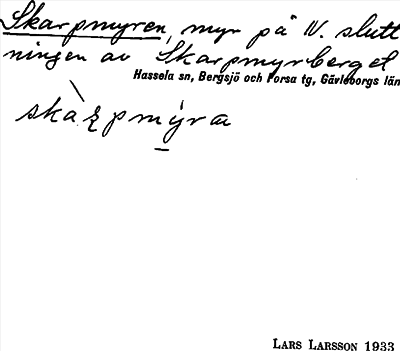 Skarpmyren, myr på N. slutt
ningen av Skarpmyrberget
Hassela sn, Bergsjö och Forsa tg, Gävleborgs län
LARS LARSSON 1933